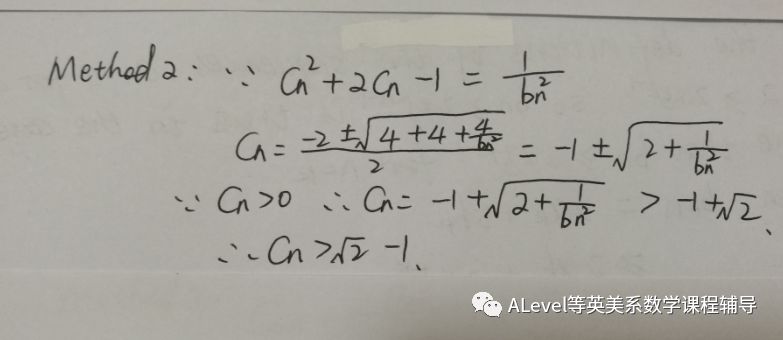 Method 2: ∵ Cn² + 2Cn - 1 = 1/bn²
Cn = (-2 ± √(4 + 4 + 4/bn²))/2 = -1 ± √(2 + 1/bn²)
∵ Cn > 0 ∴ Cn = -1 + √(2 + 1/bn²) > -1 + √2.
∴ Cn > √2 - 1.
ALevel等英美系数学课程辅导